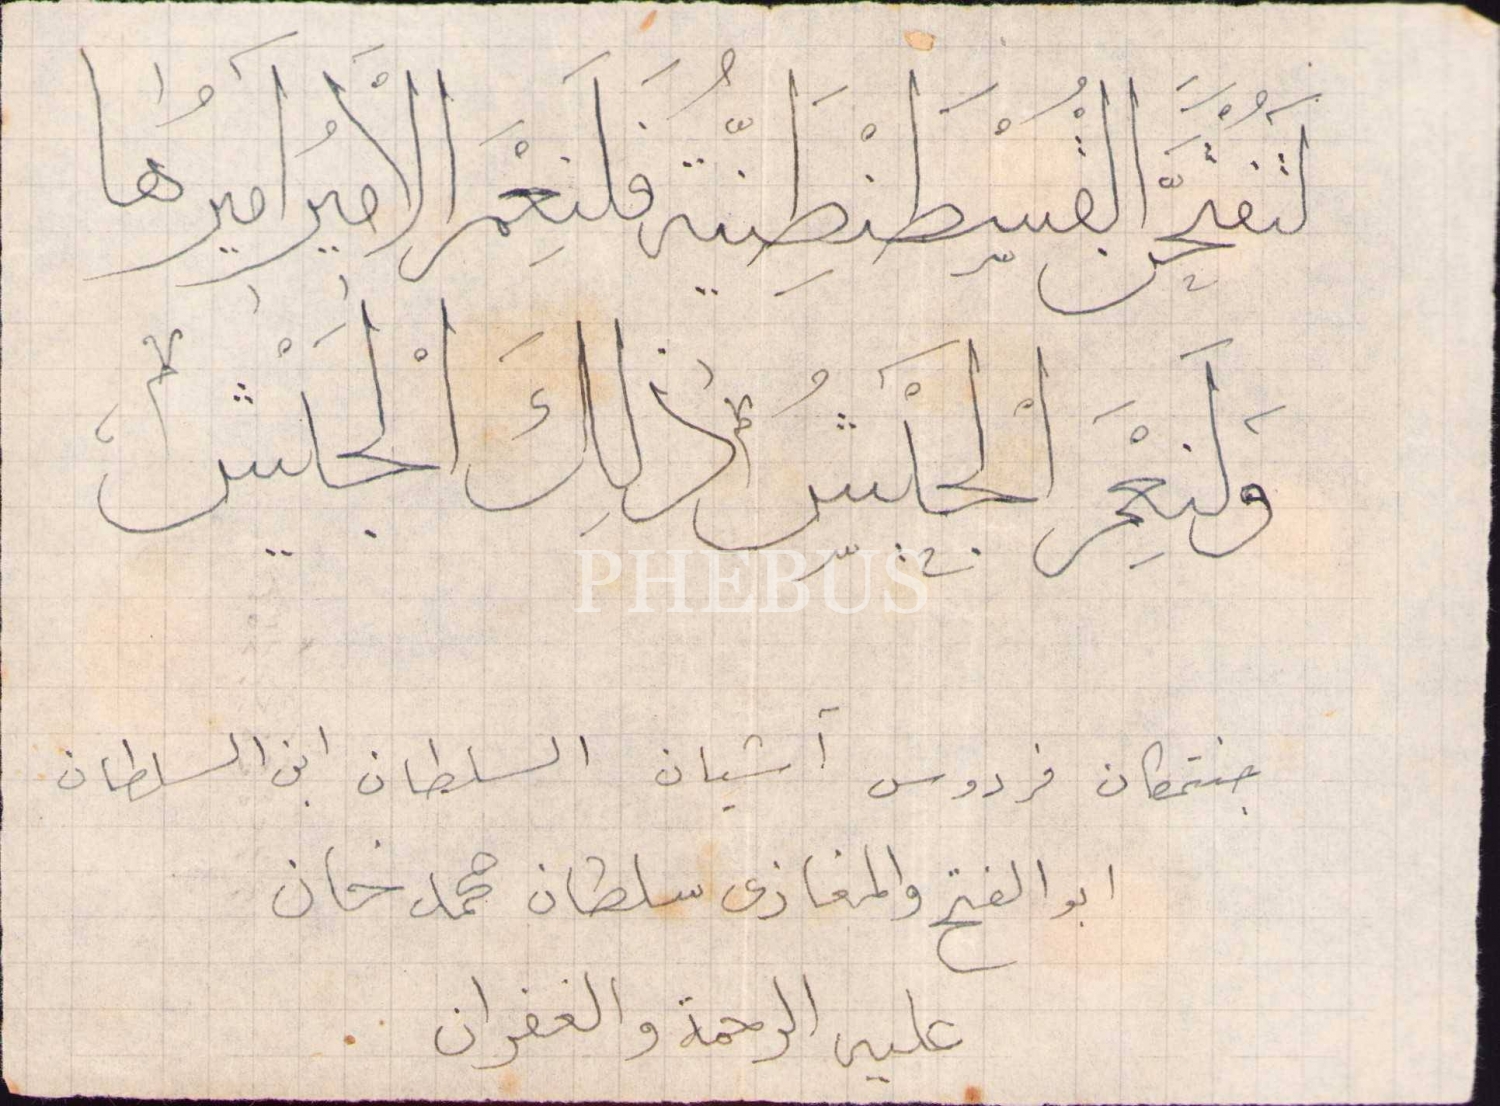 لَتُفْتَحَنَّ الْقُسْطَنْطِنِيَّةُ فَلَنِعْمَ الْأَمِيرُ أَمِيرُهَا
وَلَنِعْمَ الْجَيْشُ ذٰلِكَ الْجَيْشُ
PHEBUS
جنتمكان فردوس آشيان السلطان ابن السلطان
ابو الفتح والمغازى سلطان محمد خان
عليه الرحمة والغفران